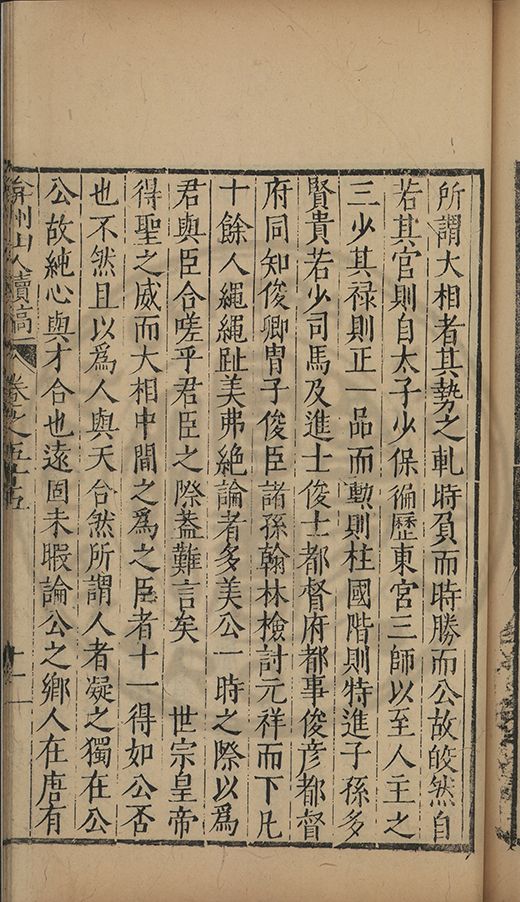 所謂大相者其勢之軋時負而時勝而公故皎然自
若其官則自太子少保徧歷東宮三師以至人主之
三少其禄則正一品而勲則柱國階則特進子孫多
賢貴若少司馬及進士俊士都督府都事俊彦都督
府同知俊卿胄子俊臣諸孫翰林檢討元祥而下凡
十餘人繩繩趾美弗絶論者多美公一時之際以爲
君與臣合嗟乎君臣之際葢難言矣 世宗皇帝
得聖之威而大相中間之爲之臣者十一得如公否
也不然且以爲人與天合然所謂人者凝之獨在公
公故純心與才合也遠固未暇論公之鄉人在唐有
弇州山人續稿 卷之五十五 十一